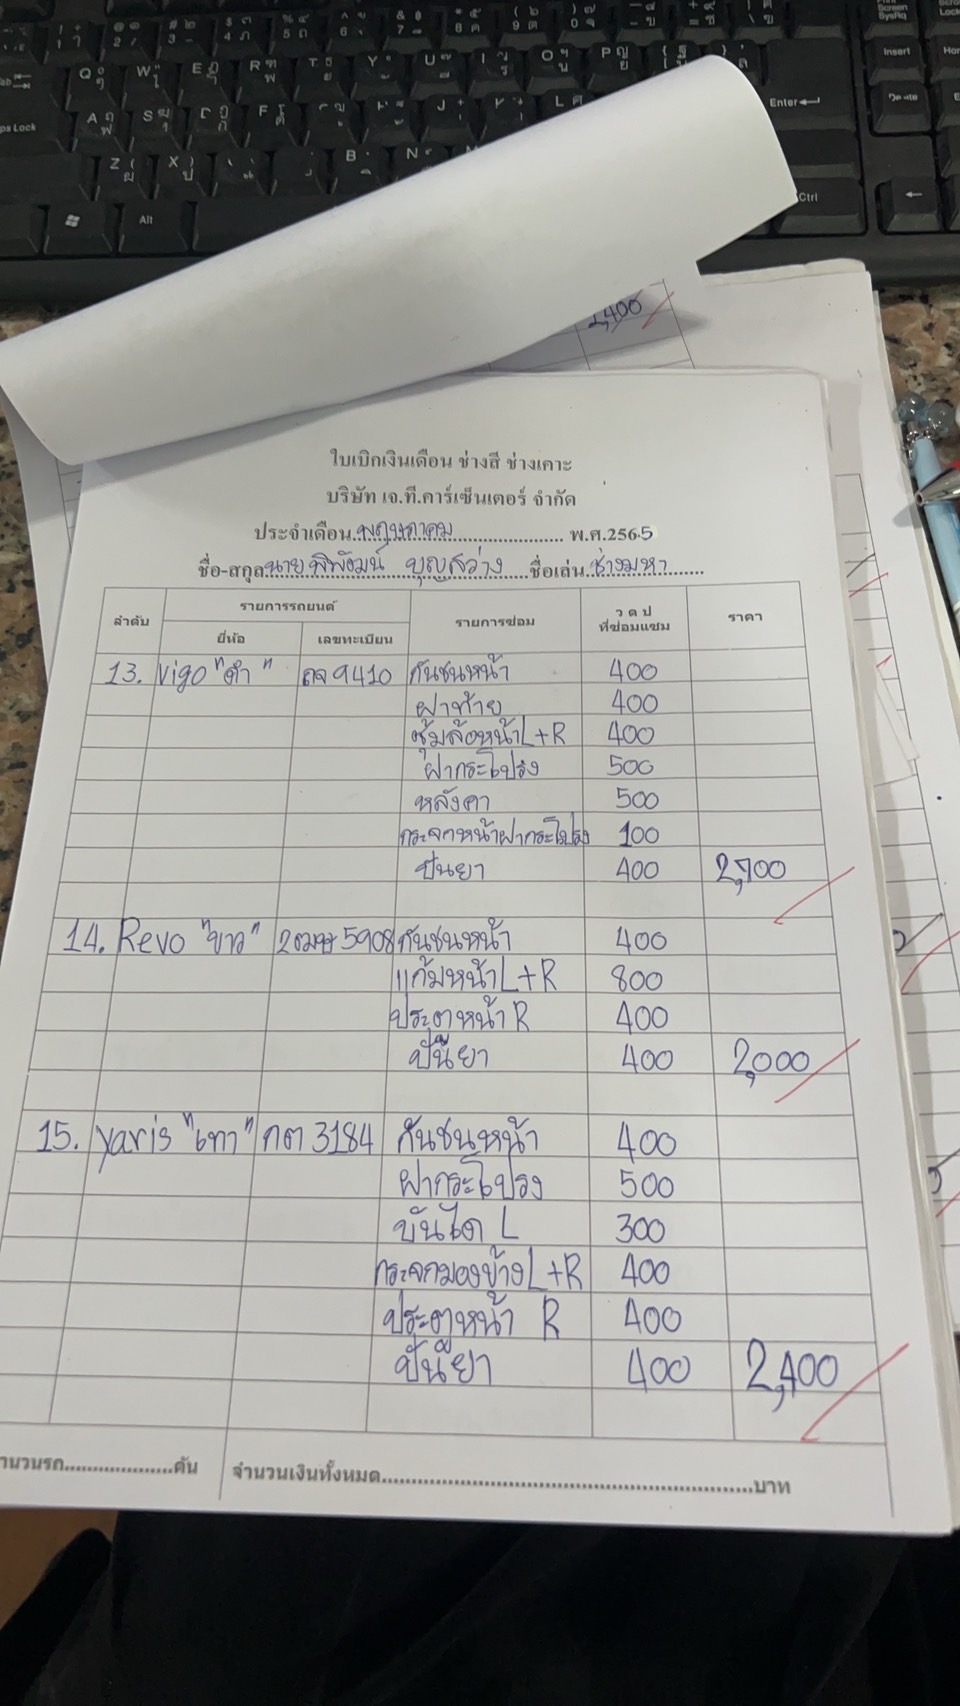 2,400
ใบเบิกเงินเดือน ช่างสี ช่างเคาะ
บริษัท เจ.ที.คาร์เซ็นเตอร์ จำกัด
ประจำเดือน พฤษภาคม พ.ศ.2565
ชื่อ-สกุล นาย พิพัฒน์ บุญสว่าง ชื่อเล่น ช่างมหา
ลำดับ รายการรถยนต์ รายการซ่อม ว ด ป ที่ซ่อมแซม ราคา
ยี่ห้อ เลขทะเบียน
13. Vigo "ดำ" 9410 กันชนหน้า 400
ฝาท้าย 400
ซุ้มล้อหน้า L+R 400
ฝากระโปรง 500
หลังคา 500
กระจกหน้าฝากระโปรง 100
ปั่นยา 400 2,700
14. Revo "ขาว" 5908 กันชนหน้า 400
แก้มหน้า L+R 800
ประตูหน้า R 400
ปั่นยา 400 2,000
15. Yaris "เทา" กต 3184 กันชนหน้า 400
ฝากระโปรง 500
บันได L 300
กระจกมองข้าง L+R 400
ประตูหน้า R 400
ปั่นยา 400 2,400
คัน จำนวนเงินทั้งหมด บาท